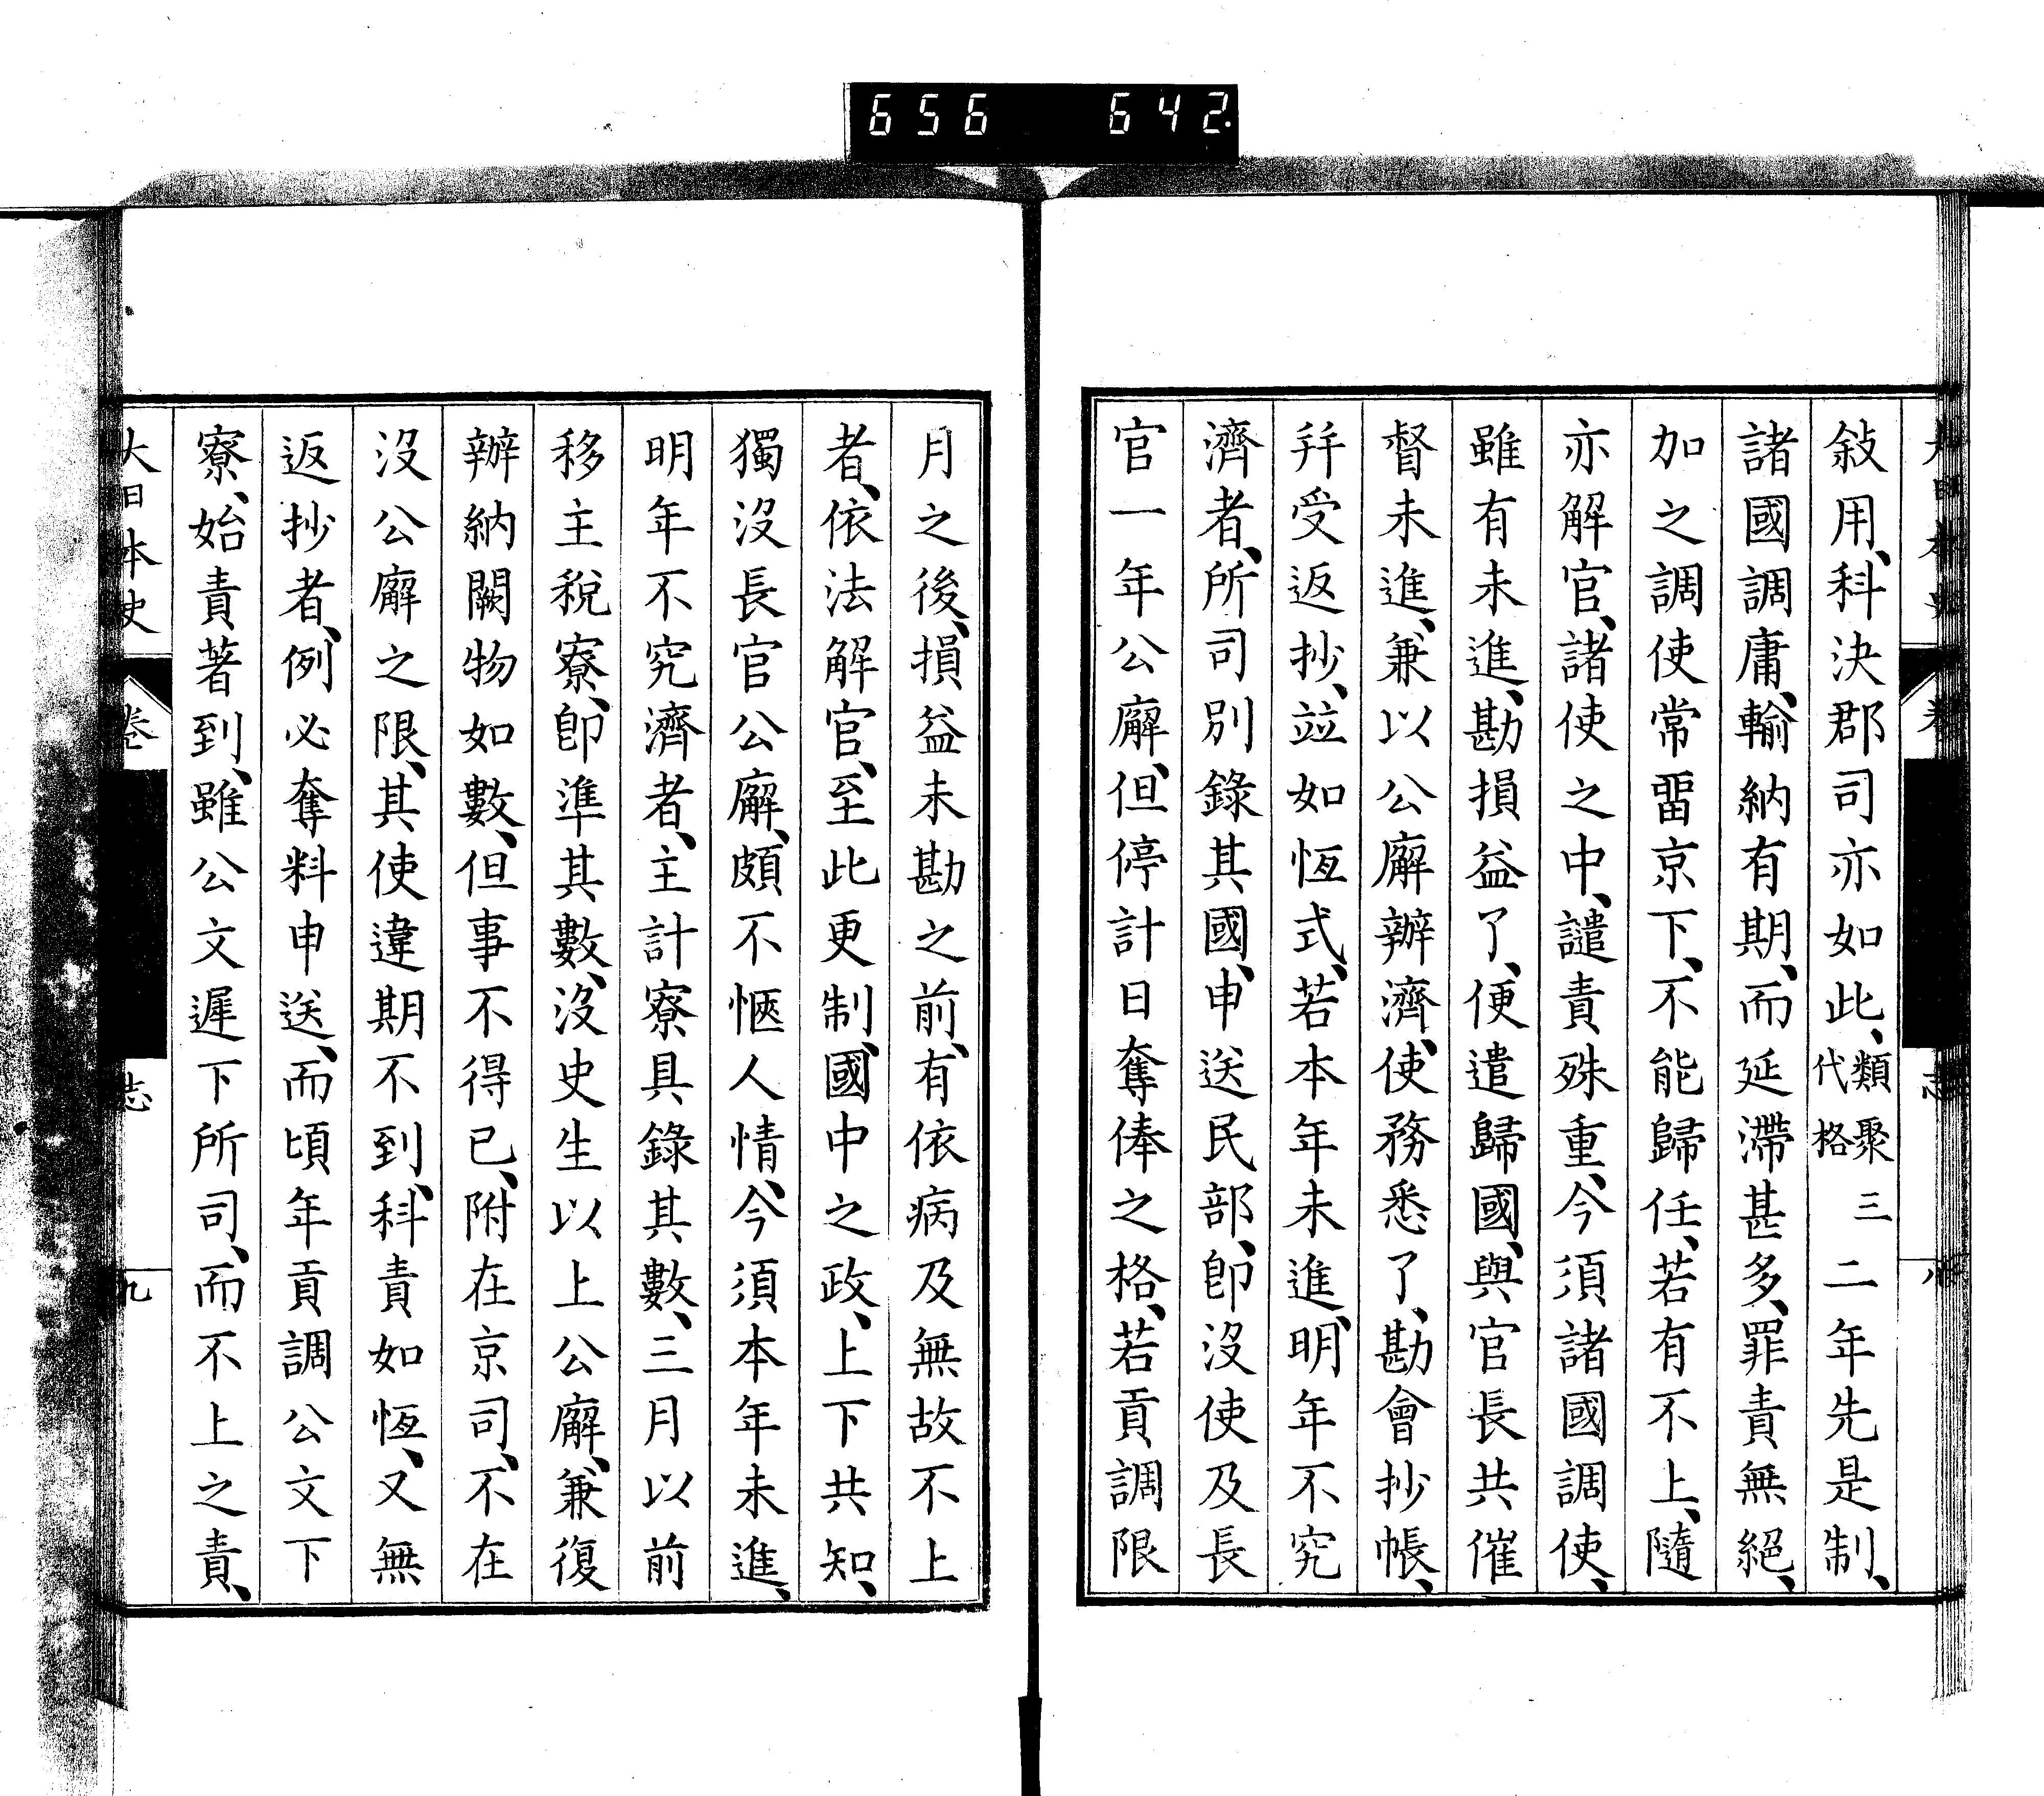 656 642
敍用、科決郡司亦如此、類聚三代格 二年先是制、
諸國調庸、輸納有期、而延滯甚多、罪責無絕、
加之調使常畱京下、不能歸任、若有不上、隨
亦解官、諸使之中、譴責殊重、今須諸國調使、
雖有未進、勘損益了、便遣歸國、與官長共催
督未進、兼以公廨辦濟、使務悉了、勘會抄帳、
幷受返抄、竝如恆式、若本年未進、明年不究
濟者、所司別錄其國、申送民部、卽沒使及長
官一年公廨、但停計日奪俸之格、若貢調限
月之後、損益未勘之前、有依病及無故不上
者、依法解官、至此更制、國中之政、上下共知、
獨沒長官公廨、頗不愜人情、今須本年未進、
明年不究濟者、主計寮具錄其數、三月以前
移主稅寮、卽準其數、沒史生以上公廨、兼復
辦納闕物如數、但事不得已、附在京司、不在
沒公廨之限、其使違期不到、科責如恆、又無
返抄者、例必奪料申送、而頃年貢調公文下
寮、始責著到、雖公文遲下所司、而不上之責、
大日本史 卷 志 九